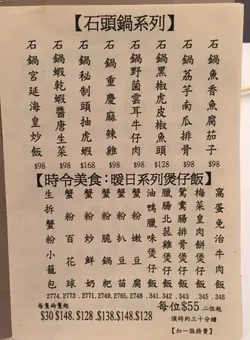 【石頭鍋系列】
石鍋魚香魚腐茄子
石鍋荔芋南瓜排骨 $98
石鍋黑椒虎皮
石鍋野菌雲耳牛仔肉 $98
石鍋重慶麻辣雞 $98
石鍋秘制頭抽虎蝦 $168
石鍋蝦乾蝦醬唐生菜 $98
石鍋宮廷海皇炒飯 $98
【時令美食：暖日系列煲仔飯】
免治牛肉煲仔飯 .346
梅菜皇肉餅煲仔飯 .345
鴛鴦腸排骨煲仔飯 .343
臘腸北菰雞煲仔飯 .342
油鴨臘味煲仔飯 .341
蟹粉 豆腐 .2748
蟹粉扒豆苗 .2765
蟹粉脆鍋粑 .2749
蟹粉炒鮮奶 .2771
蟹粉百花球 .2773
生拆蟹粉小籠包 2774
每位$55 二位起
需時約三十分鐘
【加一服務費】
$30 $148. $128 .$138.$148.$128